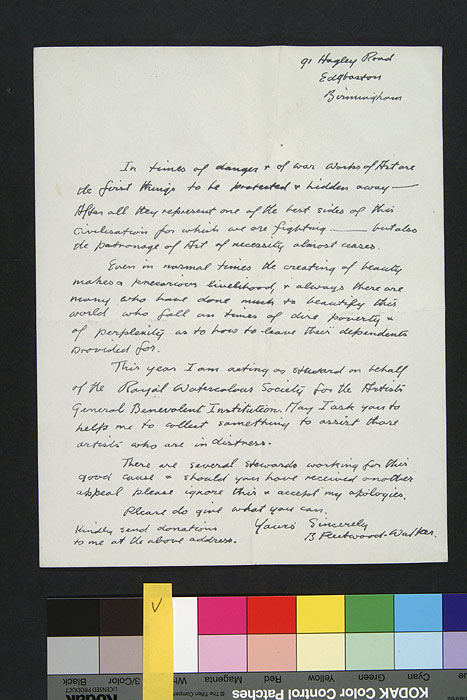 91 Hagley Road
Edgbaston
Birmingham
In times of danger & of war Works of Art are
the first things to be protected & hidden away —
After all they represent one of the best sides of this
Civilisation for which we are fighting — but also
the patronage of Art of necessity almost ceases.
Even in normal times the creating of beauty
makes a precarious livelihood, & always there are
many who have done much to beautify this
world who fall on times of dire poverty &
of perplexity as to how to leave their dependents
provided for.
This year I am acting as steward on behalf
of the Royal Watercolour Society for the Artists
General Benevolent Institution. May I ask you to
help me to collect something to assist those
artists who are in distress.
There are several stewards working for this
good cause & should you have received another
appeal please ignore this & accept my apologies.
Please do give what you can.
Kindly send donations
to me at the above address.
Yours Sincerely
B Fleetwood-Walker.
V
Black
3/Color
White
Magenta
Red
Yellow
Green
Cyan
Blue
LICENSED PRODUCT
Kodak
© The Tiffen Company
KODAK Color Control Patches